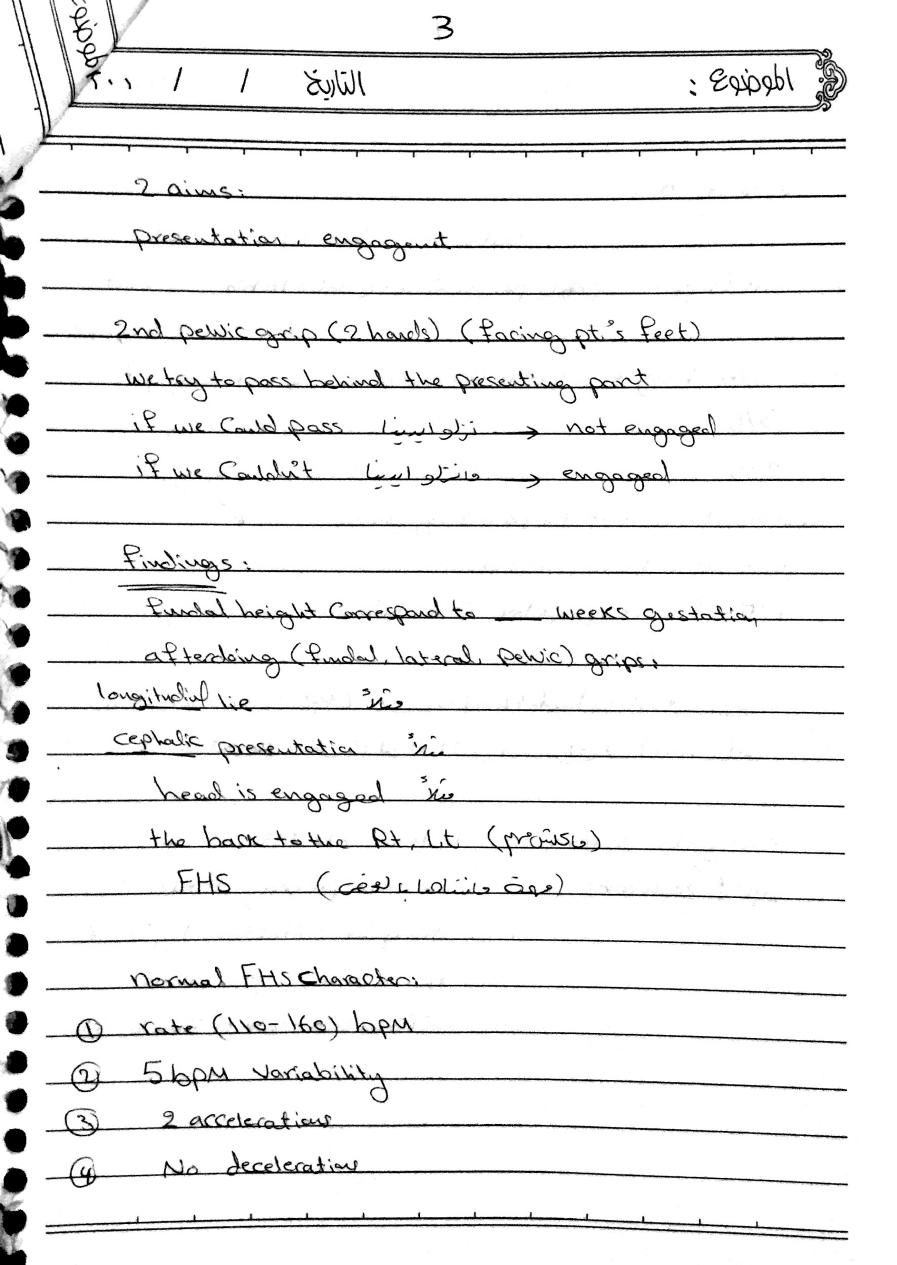 3
الموضوع : التاريخ / / ٢٠٠١
الموضوع
2 aims:
presentation, engagement
2nd pelvic grip (2 hands) (facing pt's feet)
we try to pass behind the presenting part
if we Could pass نزلو ايدينا → not engaged
if we Couldn't مانزلو ايدينا → engaged
findings:
fundal height Correspond to __ weeks gestation
after doing (fundal, lateral, pelvic) grips:
longitudinal lie مثلاً
cephalic presentation مثلاً
head is engaged مثلاً
the back to the Rt, Lt
FHS
normal FHS Character:
① rate (110-160) bpM
② 5 bpM variability
③ 2 accelerations
④ No decelerations